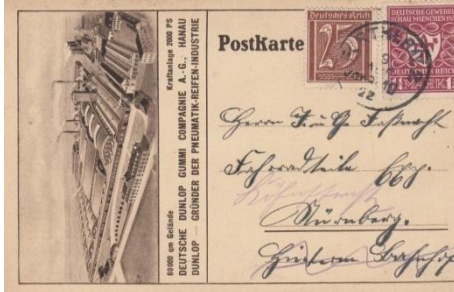 80000 qm Gelände Kraftanlage 2000 PS
DEUTSCHE DUNLOP GUMMI COMPAGNIE A.-G., HANAU
DUNLOP — GRÜNDER DER PNEUMATIK-REIFEN-INDUSTRIE
Postkarte
Deutsches Reich
25
DEUTSCHE GEWERBE
SCHAU MÜNCHEN
DEUTSCHES REICH
MARK
22
Herrn
Fahrradteile
Nürnberg.
Hinterm Bahnhof